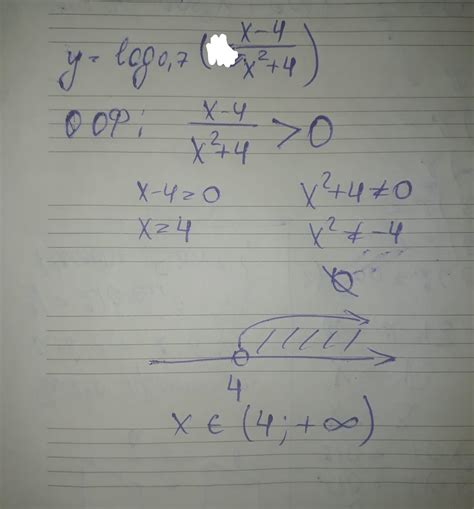 y = log0,7 (x-4/x²+4)
ООФ: x-4/x²+4 > 0
x-4=0 x²+4≠0
x=4 x²≠-4
Ø
4
x ∈ (4; +∞)